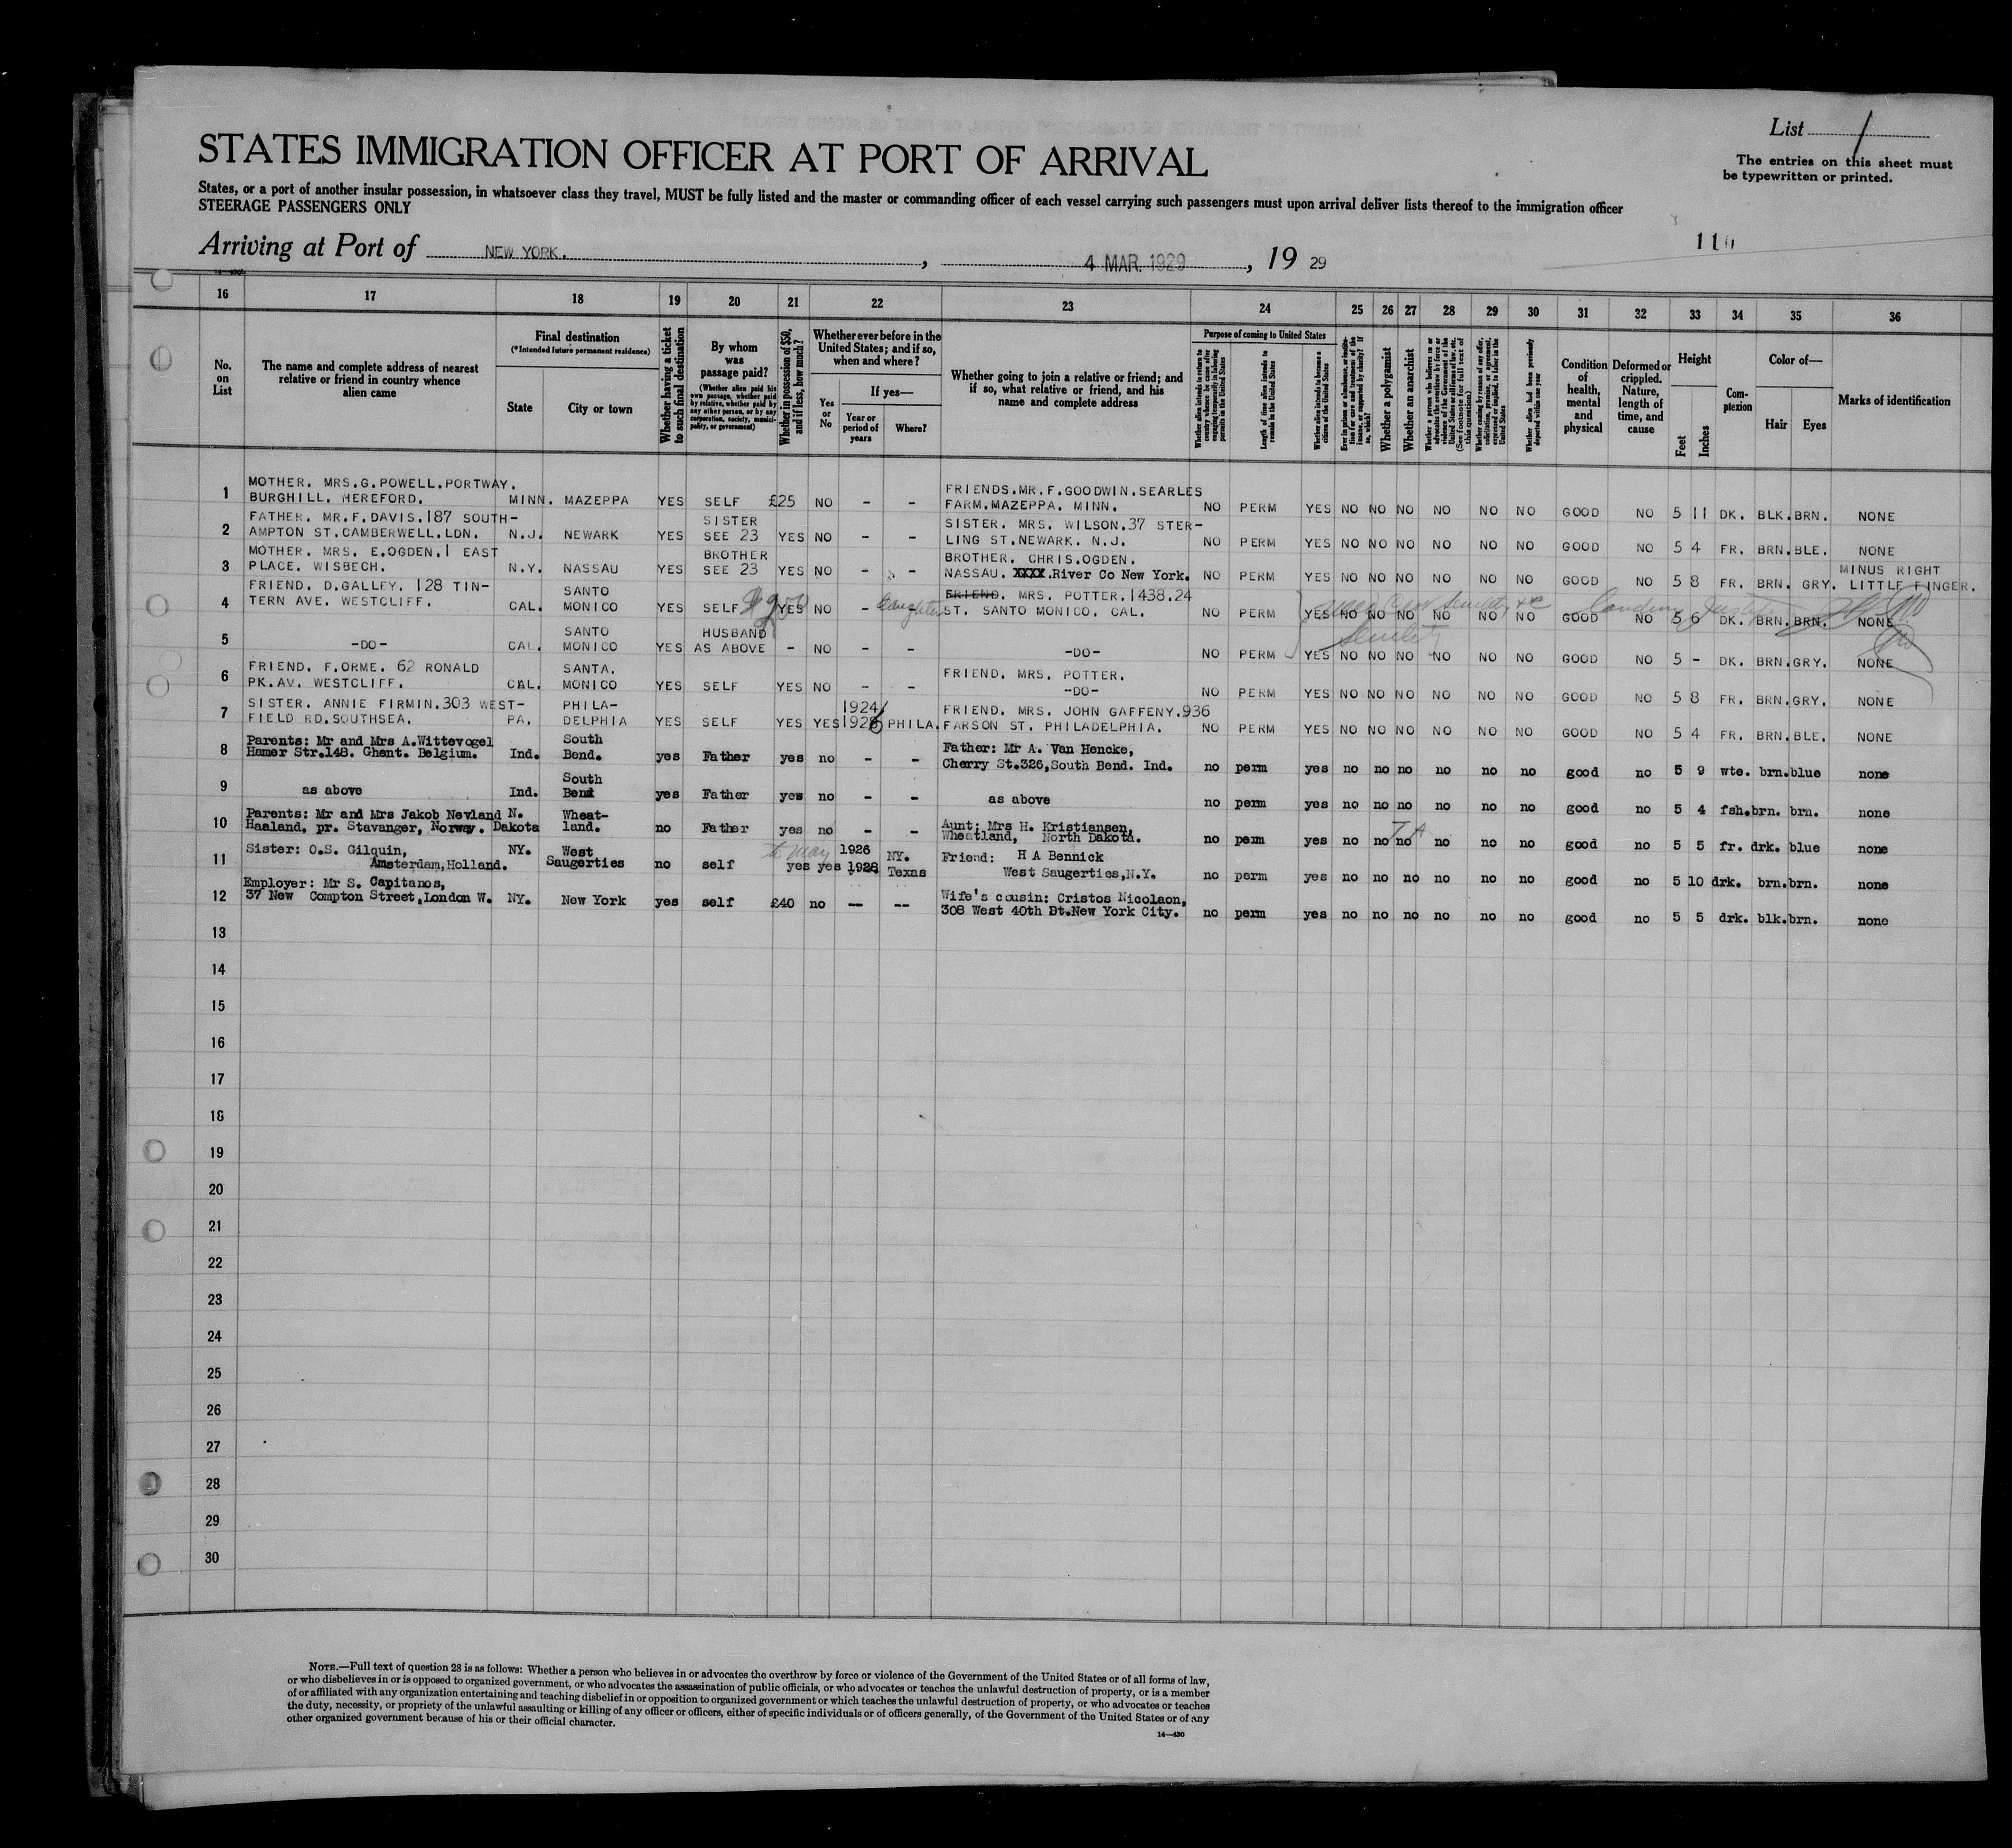 List 1
The entries on this sheet must
be typewritten or printed.
STATES IMMIGRATION OFFICER AT PORT OF ARRIVAL
States, or a port of another insular possession, in whatsoever class they travel, MUST be fully listed and the master or commanding officer of each vessel carrying such passengers must upon arrival deliver lists thereof to the immigration officer
STEERAGE PASSENGERS ONLY
Arriving at Port of NEW YORK. , 4 MAR. 1929 , 19 29
16 17 18 19 20 21 22 23 24 25 26 27 28 29 30 31 32 33 34 35 36
No. on List
The name and complete address of nearest relative or friend in country whence alien came
Final destination
(*Intended future permanent residence)
State
City or town
Whether having a ticket to such final destination
By whom was passage paid?
(Whether alien paid his own passage, whether paid by relative, whether paid by any other person, or by any corporation, society, municipality, or government)
Whether in possession of $50, and if less, how much?
Whether ever before in the United States; and if so, when and where?
Yes or No
If yes—
Year or period of years
Where?
Whether going to join a relative or friend; and if so, what relative or friend, and his name and complete address
Purpose of coming to United States
Whether alien intends to return to country whence he came after engaging temporarily in laboring pursuits in the United States
Length of time alien intends to remain in the United States
Whether alien intends to become a citizen of the United States
Whether a polygamist
Whether an anarchist
Whether alien had been previously deported within one year
Condition of health, mental and physical
Deformed or crippled. Nature, length of time, and cause
Height
Feet
Inches
Complexion
Color of—
Hair
Eyes
Marks of identification
1 MOTHER. MRS.G.POWELL.PORTWAY. BURGHILL. HEREFORD. MINN. MAZEPPA YES SELF £25 NO - - FRIENDS.MR.F.GOODWIN.SEARLES FARM.MAZEPPA. MINN. NO PERM YES NO NO NO NO NO NO GOOD NO 5 11 DK. BLK. BRN. NONE
2 FATHER. MR.F.DAVIS.187 SOUTH- AMPTON ST.CAMBERWELL.LDN. N.J. NEWARK YES SISTER SEE 23 YES NO - - SISTER. MRS. WILSON.37 STER- LING ST.NEWARK. N.J. NO PERM YES NO NO NO NO NO NO GOOD NO 5 4 FR. BRN. BLE. NONE
3 MOTHER. MRS. E.OGDEN.1 EAST PLACE. WISBECH. N.Y. NASSAU YES BROTHER SEE 23 YES NO - - BROTHER. CHRIS.OGDEN. NASSAU. XXXX.River Co New York. NO PERM YES NO NO NO NO NO NO GOOD NO 5 8 FR. BRN. GRY. MINUS RIGHT LITTLE FINGER.
4 FRIEND. D.GALLEY. 128 TIN- TERN AVE. WESTCLIFF. CAL. SANTO MONICO YES SELF YES NO - daughter FRIEND. MRS. POTTER.1438.24 ST. SANTO MONICO. CAL. NO PERM YES NO NO NO NO NO NO GOOD NO 5 6 DK. BRN. BRN. NONE
5 -DO- CAL. SANTO MONICO YES HUSBAND AS ABOVE - NO - - -DO- NO PERM YES NO NO NO NO NO NO GOOD NO 5 - DK. BRN. GRY. NONE
6 FRIEND. F.ORME. 62 RONALD PK.AV. WESTCLIFF. CAL. SANTA. MONICO YES SELF YES NO - - FRIEND. MRS. POTTER. -DO- NO PERM YES NO NO NO NO NO NO GOOD NO 5 8 FR. BRN. GRY. NONE
7 SISTER. ANNIE FIRMIN.303 WEST- FIELD RD.SOUTHSEA. PA. PHILA- DELPHIA YES SELF YES YES 1924/ 1926 PHILA. FRIEND. MRS. JOHN GAFFENY.936 FARSON ST. PHILADELPHIA. NO PERM YES NO NO NO NO NO NO GOOD NO 5 4 FR. BRN. BLE. NONE
8 Parents: Mr and Mrs A.Wittevogel Hamer Str.148. Ghent. Belgium. Ind. South Bend. yes Father yes no - - Father: Mr A. Van Hencke, Cherry St.326,South Bend. Ind. no perm yes no no no no no no good no 5 9 wte. brn. blue none
9 as above Ind. South Bend yes Father yes no - - as above no perm yes no no no no no no good no 5 4 fsh. brn. brn. none
10 Parents: Mr and Mrs Jakob Nevland Haaland, pr. Stavanger, Norway. N. Dakota Wheat- land. no Father yes no - - Aunt: Mrs H. Kristiansen, Wheatland, North Dakota. no perm yes no no no no no no good no 5 5 fr. drk. blue none
11 Sister: C.S. Gilquin, Amsterdam,Holland. NY. West Saugerties no self yes yes 1926 1928 NY. Texas Friend: H A Bennick West Saugerties,N.Y. no perm yes no no no no no no good no 5 10 drk. brn. brn. none
12 Employer: Mr S. Capitanos, 37 New Compton Street,London W. NY. New York yes self £40 no -- -- Wife's cousin: Cristos Nicolaon, 308 West 40th Bt.New York City. no perm yes no no no no no no good no 5 5 drk. blk. brn. none
13
14
15
16
17
18
19
20
21
22
23
24
25
26
27
28
29
30
NOTE.—Full text of question 28 is as follows: Whether a person who believes in or advocates the overthrow by force or violence of the Government of the United States or of all forms of law,
or who disbelieves in or is opposed to organized government, or who advocates the assassination of public officials, or who advocates or teaches the unlawful destruction of property, or is a member
of or affiliated with any organization entertaining and teaching disbelief in or opposition to organized government or which teaches the unlawful destruction of property, or who advocates or teaches
the duty, necessity, or propriety of the unlawful assaulting or killing of any officer or officers, either of specific individuals or of officers generally, of the Government of the United States or of any
other organized government because of his or their official character.
14—430